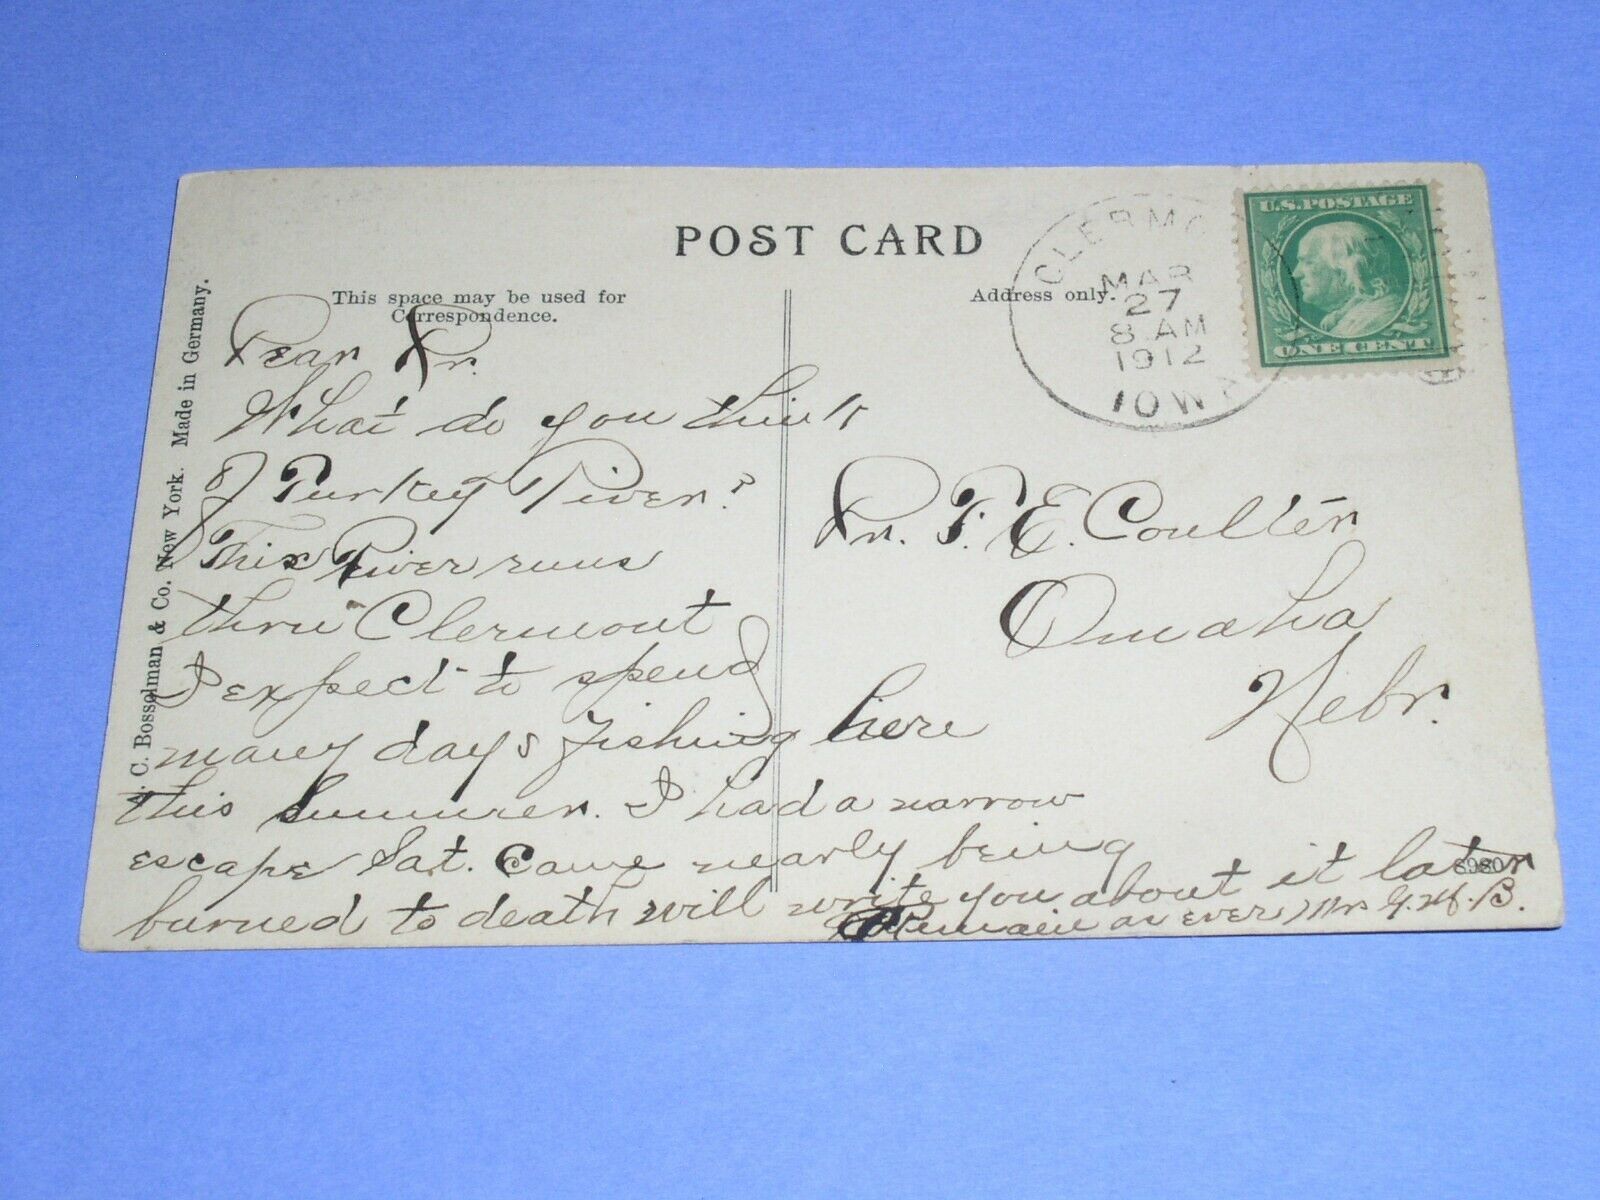 POST CARD
This space may be used for
Correspondence.
Address only.
CLERMO
MAR
27
8 AM
1912
IOWA
U.S. POSTAGE
ONE CENT
C. Bosselman & Co. New York. Made in Germany.
Dear Dr.
What do you think
of Turkey River?
This River runs
thru Clermont
I expect to spend
many days fishing here
this summer. I had a narrow
escape Sat. Came nearly being
burned to death will write you about it later
Remain as ever Mrs G. M. B.
Dr. P. E. Coulter
Omaha
Nebr.
8980